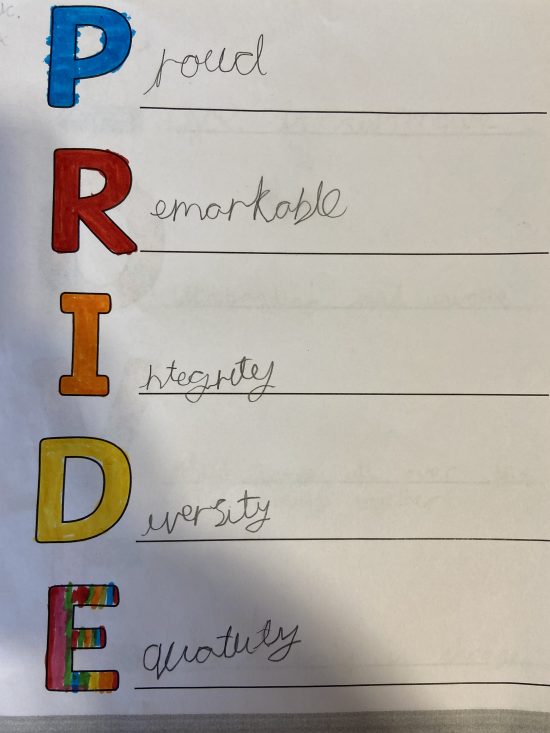 Proud
Remarkable
Integrity
Diversity
Equality